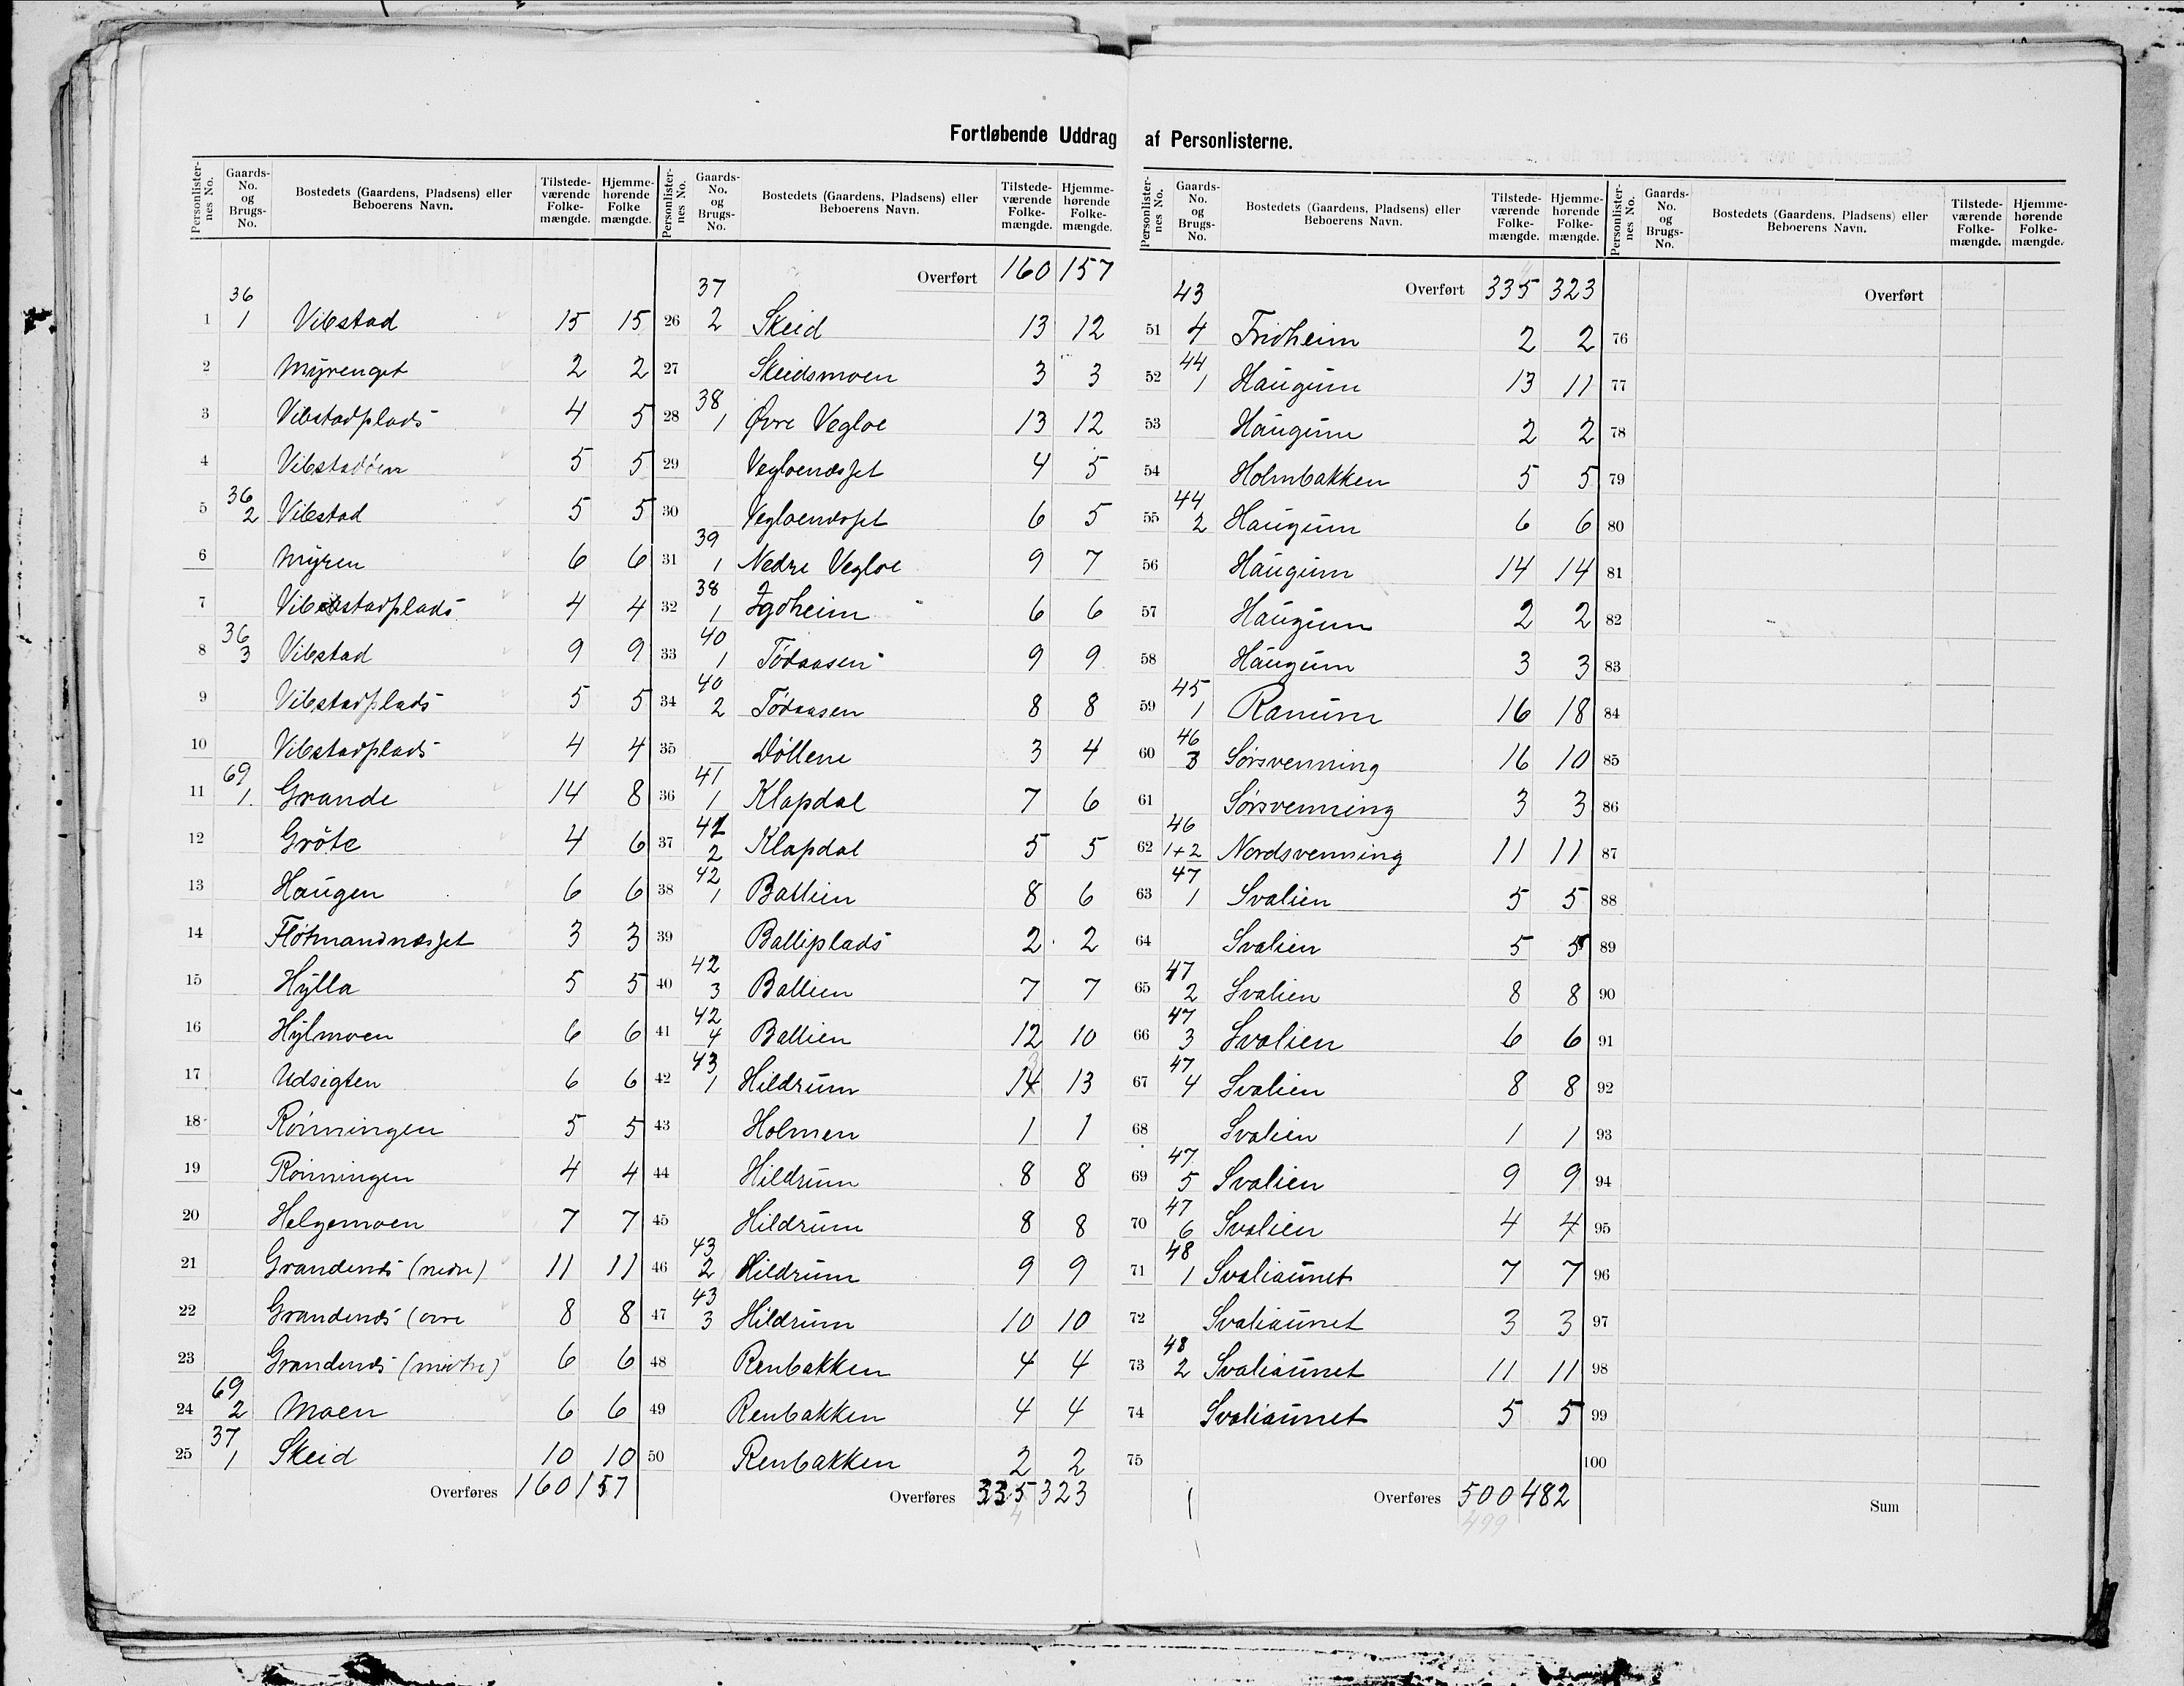 Fortløbende Uddrag af Personlisterne.
Personlisternes No. | Gaards-No. og Brugs-No. | Bostedets (Gaardens, Pladsens) eller Beboerens Navn. | Tilstedeværende Folkemængde. | Hjemmehørende Folkemængde.
1 36/1 Vibstad 15 15
2 Myrenget 2 2
3 Vibstadplads 4 5
4 Vibstadøen 5 5
5 36/2 Vibstad 5 5
6 Myren 6 6
7 Vibstadplads 4 4
8 36/3 Vibstad 9 9
9 Vibstadplads 5 5
10 Vibstadplads 4 4
11 69/1 Grande 14 8
12 Gröte 4 6
13 Haugen 6 6
14 Fløtmandnæsset 3 3
15 Hylla 5 5
16 Hylmoen 6 6
17 Udsigten 6 6
18 Rønningen 5 5
19 Rønningen 4 4
20 Helgemoen 7 7
21 Grandenæs (nedre) 11 11
22 Grandenæs (øvre 8 8
23 Grandenæs (midtre) 6 6
24 69/2 Moen 6 6
25 37/1 Skeid 10 10
Overføres 160 157
Overført 160 157
26 37/2 Skeid 13 12
27 Skeidsmoen 3 3
28 38/1 Øvre Vegloe 13 12
29 Vegloenæsset 4 5
30 Vegloenæsset 6 5
31 39/1 Nedre Vegloe 9 7
32 38/1 Igdheim 6 6
33 40/1 Tødaasen 9 9
34 40/2 Tødaasen 8 8
35 Døllene 3 4
36 41/1 Klapdal 7 6
37 41/2 Klapdal 5 5
38 42/1 Ballien 8 6
39 Balliplads 2 2
40 42/3 Ballien 7 7
41 42/4 Ballien 12 10
42 43/1 Hildrum 14 13
43 Holmen 1 1
44 Hildrum 8 8
45 Hildrum 8 8
46 43/2 Hildrum 9 9
47 43/3 Hildrum 10 10
48 Renbakken 4 4
49 Renbakken 4 4
50 Renbakken 2 2
Overføres 335 323
4
Overført 335 323
51 43/4 Fridheim 2 2
52 44/1 Haugum 13 11
53 Haugum 2 2
54 Holmbakken 5 5
55 44/2 Haugum 6 6
56 Haugum 14 14
57 Haugum 2 2
58 Haugum 3 3
59 45/1 Ranum 16 18
60 46/3 Sørsvenning 16 10
61 Sørsvenning 3 3
62 46/1+2 Nordsvenning 11 11
63 47/1 Svalien 5 5
64 Svalien 5 5
65 47/2 Svalien 8 8
66 47/3 Svalien 6 6
67 47/4 Svalien 8 8
68 Svalien 1 1
69 47/5 Svalien 9 9
70 47/6 Svalien 4 4
71 48/1 Svaliaunet 7 7
72 Svaliaunet 3 3
73 48/2 Svaliaunet 11 11
74 Svaliaunet 5 5
75
1 Overføres 500 482
499
Overført
76
77
78
79
80
81
82
83
84
85
86
87
88
89
90
91
92
93
94
95
96
97
98
99
100
Sum